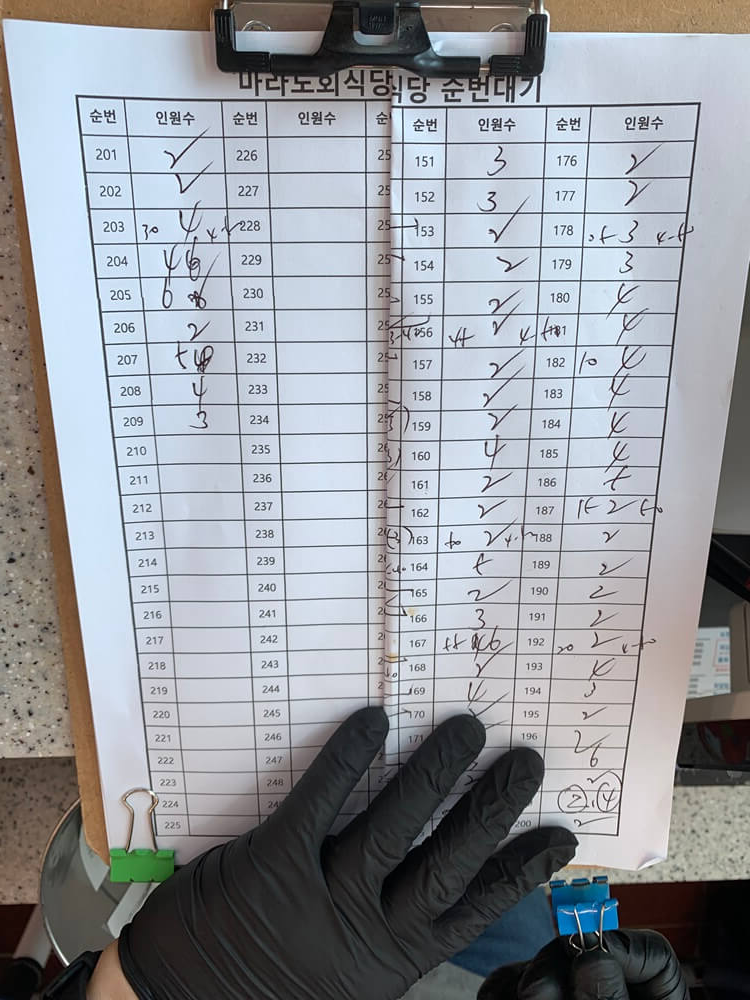 마라도회식당
식당 순번대기
순번 인원수 순번 인원수
201 2 226
202 2 227
203 30 4 228
204 4 6 229
205 6 230
206 2 231
207 232
208 4 233
209 3 234
210 235
211 236
212 237
213 238
214 239
215 240
216 241
217 242
218 243
219 244
220 245
221 246
222 247
223 248
224
225
순번 인원수 순번 인원수
151 3 176 2
152 3 177 2
153 2 178 3
154 2 179 3
155 2 180 4
156 2 181 4
157 2 182 10 4
158 2 183 4
159 2 184 4
160 4 185 4
161 2 186
162 2 187 2
163 2 188 2
164 189 2
165 2 190 2
166 3 191 2
167 6 192 20 2
168 2 193 4
169 4 194 3
170 195 2
171 196 2
6
2
2, 4
200 2